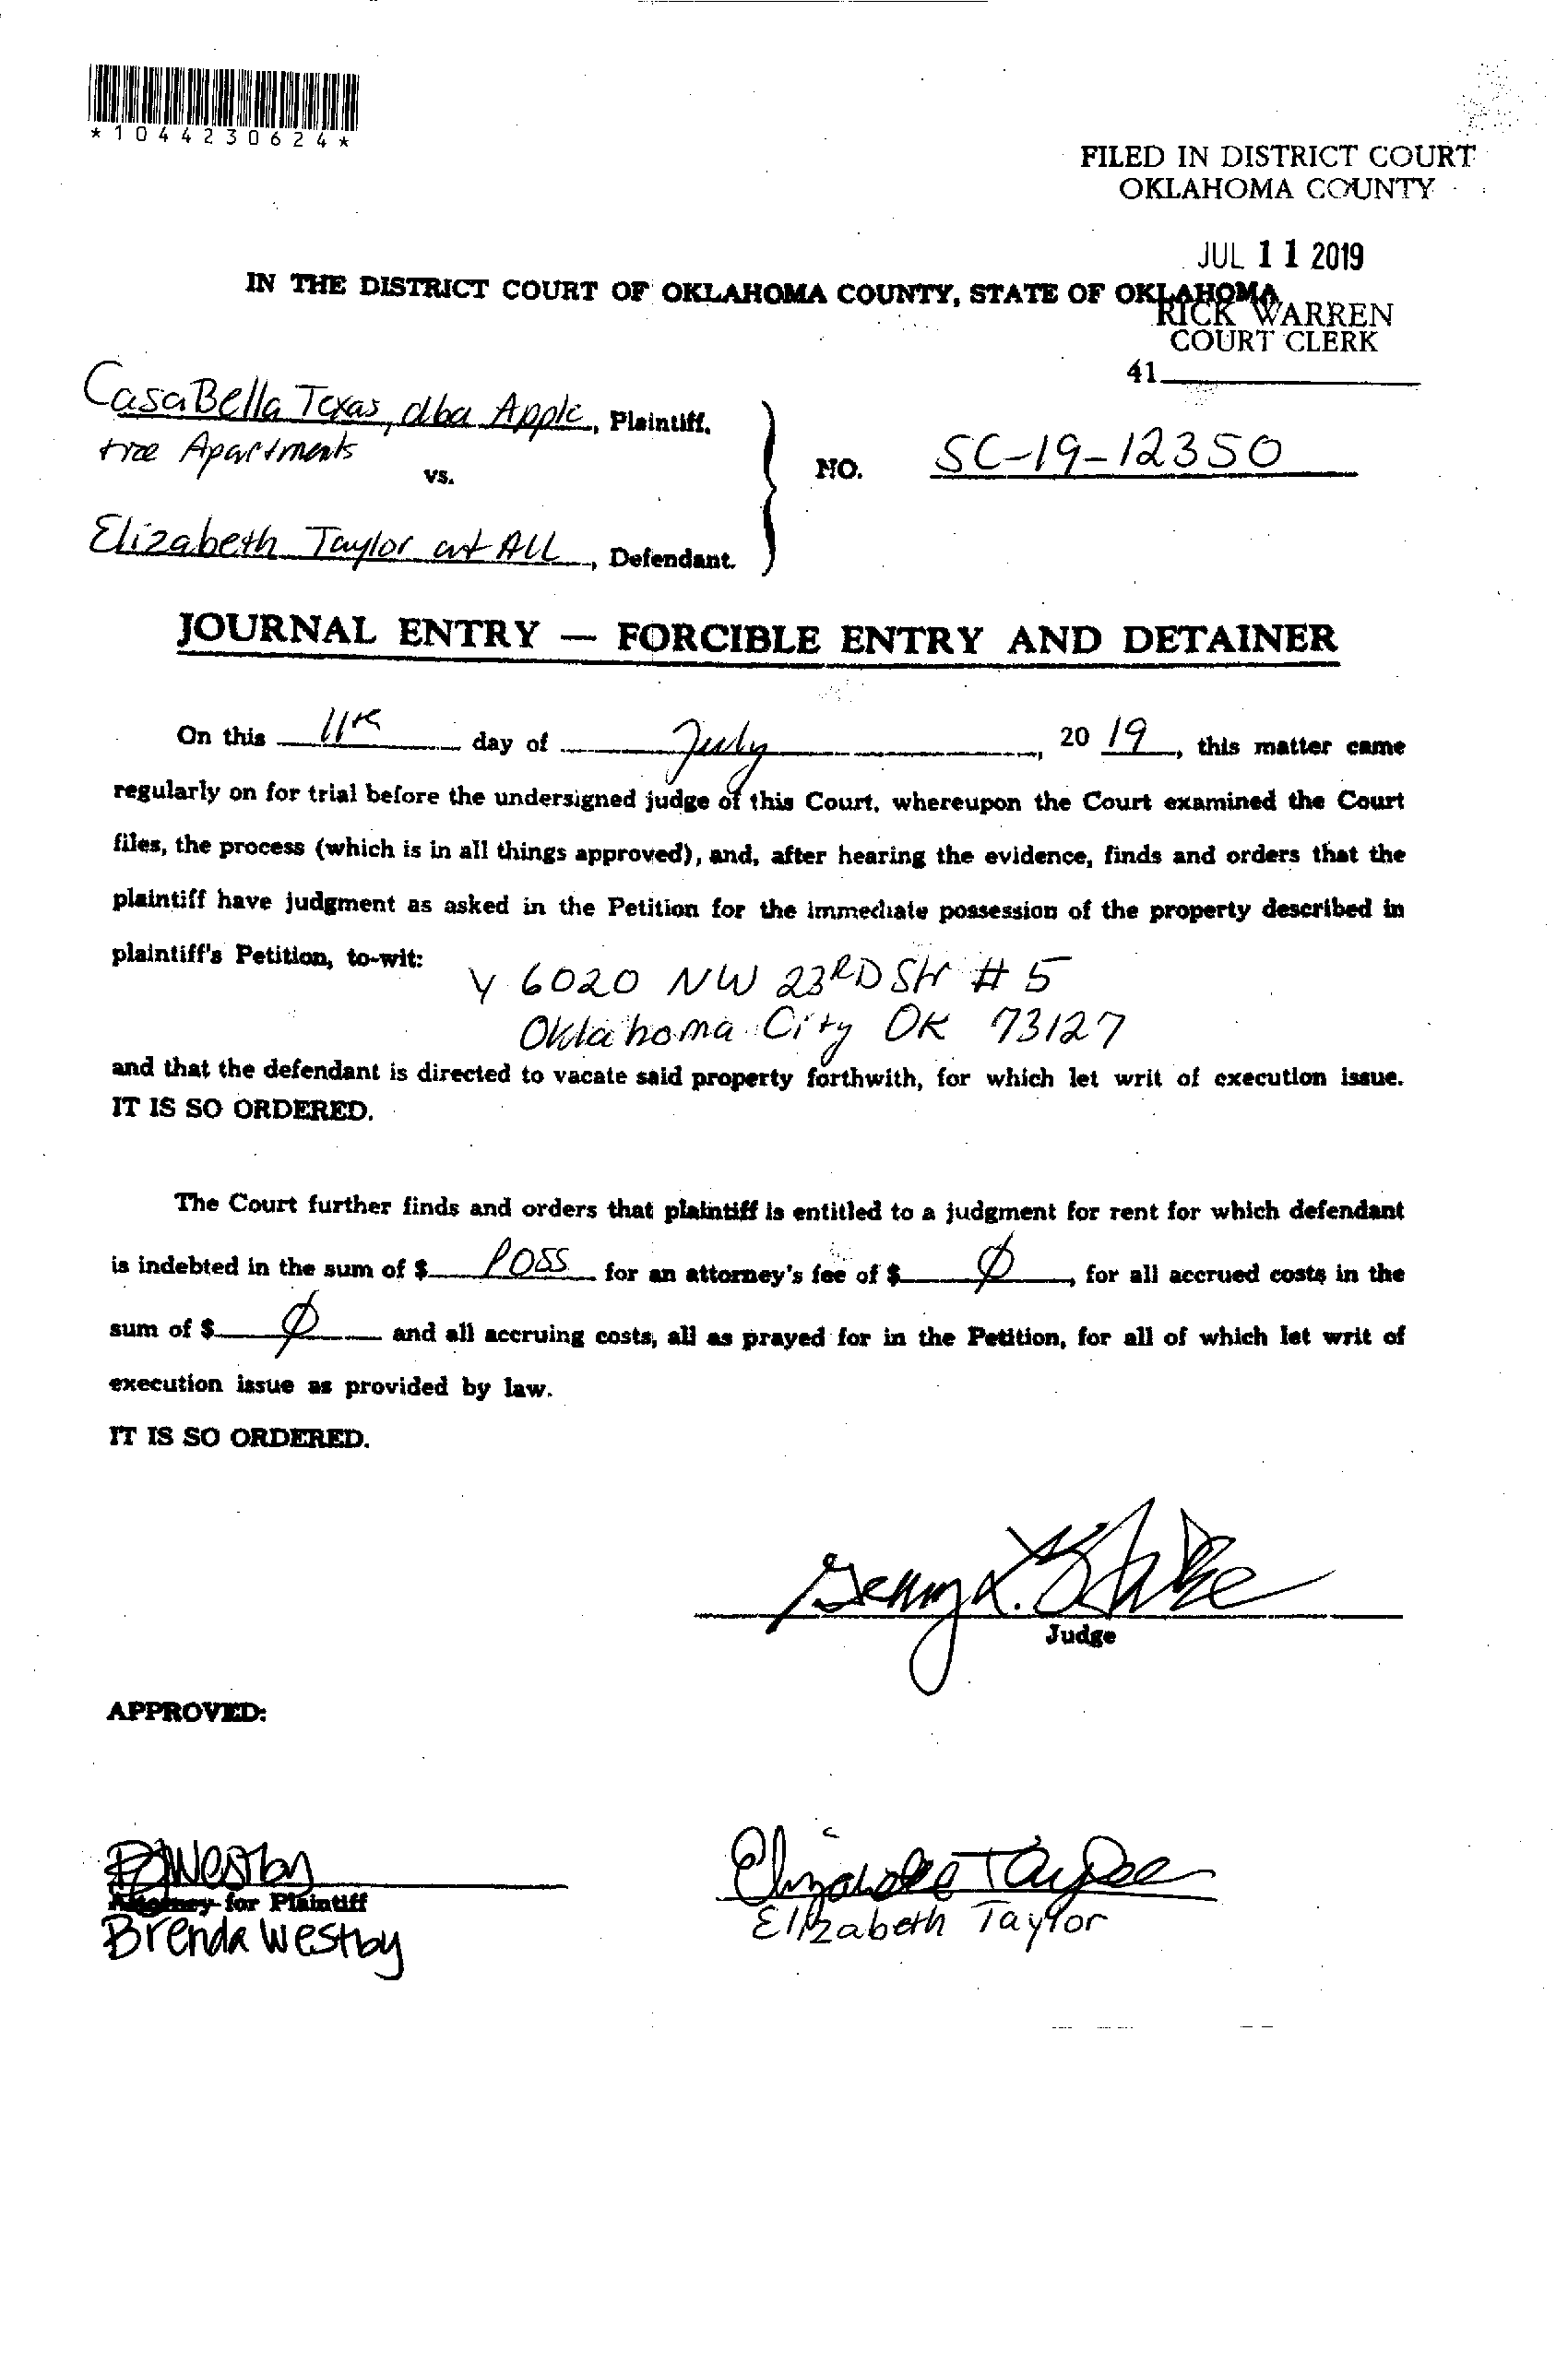 *1044230624*
FILED IN DISTRICT COURT
OKLAHOMA COUNTY
JUL 11 2019
IN THE DISTRICT COURT OF OKLAHOMA COUNTY, STATE OF OKLAHOMA
RICK WARREN
COURT CLERK
41
CasaBella Texas, dba Apple, Plaintiff,
tree Apartments
vs.
NO. SC-19-12350
Elizabeth Taylor et ALL, Defendant.
JOURNAL ENTRY — FORCIBLE ENTRY AND DETAINER
On this 11th day of July, 2019, this matter came
regularly on for trial before the undersigned judge of this Court, whereupon the Court examined the Court
files, the process (which is in all things approved), and, after hearing the evidence, finds and orders that the
plaintiff have judgment as asked in the Petition for the immediate possession of the property described in
plaintiff's Petition, to-wit:
6020 NW 23RD Str # 5
Oklahoma City OK 73127
and that the defendant is directed to vacate said property forthwith, for which let writ of execution issue.
IT IS SO ORDERED.
The Court further finds and orders that plaintiff is entitled to a judgment for rent for which defendant
is indebted in the sum of $ POSS for an attorney's fee of $ Ø, for all accrued costs in the
sum of $ Ø and all accruing costs, all as prayed for in the Petition, for all of which let writ of
execution issue as provided by law.
IT IS SO ORDERED.
Judge
APPROVED:
BWestby
Attorney for Plaintiff
Brenda Westby
Elizabeth Taylor
Elizabeth Taylor